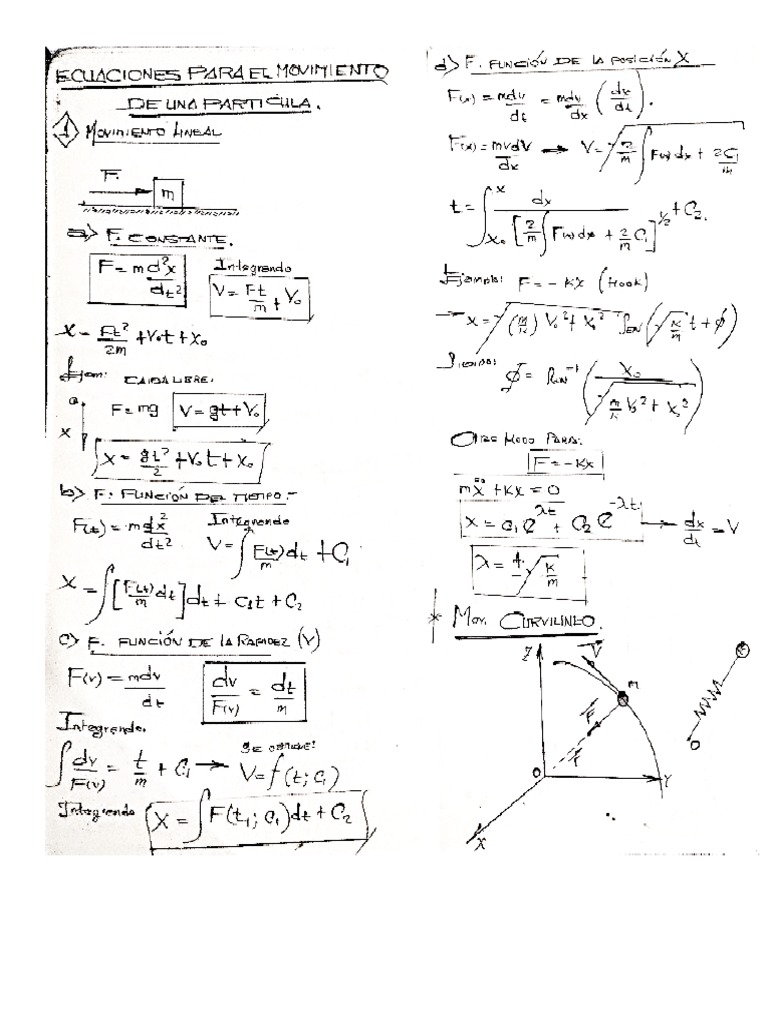 ECUACIONES PARA EL MOVIMIENTO
DE UNA PARTICULA.
1 MOVIMIENTO LINEAL
F.
m
a) F. CONSTANTE.
F = m d²x/dt²
Integrando
V = Ft/m + V₀
X = Ft²/2m + V₀t + X₀
Ejem: CAIDA LIBRE:
F = mg
V = gt + V₀
X
X = gt²/2 + V₀t + X₀
b) F. FUNCIÓN DEL TIEMPO.-
F(t) = m dx²/dt²
Integrando
V = ∫ F(t)/m dt + C₁
X = ∫ [F(t)/m dt] dt + C₁t + C₂
c) F. FUNCIÓN DE LA RAPIDEZ (V)
F(v) = mdv/dt
dv/F(v) = dt/m
Integrando.
∫ dv/F(v) = t/m + C₁ → V = f(t; C₁)
se obtiene:
Integrando X = ∫ F(t₁; C₁) dt + C₂
d) F. FUNCIÓN DE LA POSICIÓN X
F(x) = mdv/dt = mdv/dx (dx/dt).
F(x) = mvdV/dx → V = √(2/m ∫ F(x)dx + 2C₁/m)
t = ∫ₓ₀ˣ dx/[2/m ∫ F(x)dx + 2/m C₁]^1/2 + C₂.
Ejemplo: F = - Kx (HOOK)
X = √((m/k) V₀² + X₀²) SEN (√(K/m) t + ϕ)
Siendo: ϕ = Sen⁻¹ (X₀/√(m/k V₀² + X₀²))
OTRO MODO PARA:
F = - Kx
mẍ + Kx = 0
X = C₁ e^λt + C₂ e^-λt → dx/dt = V
λ = √(K/m)
* MOV. CURVILINEO.
Z
V
m
F
r
O
Y
X
O